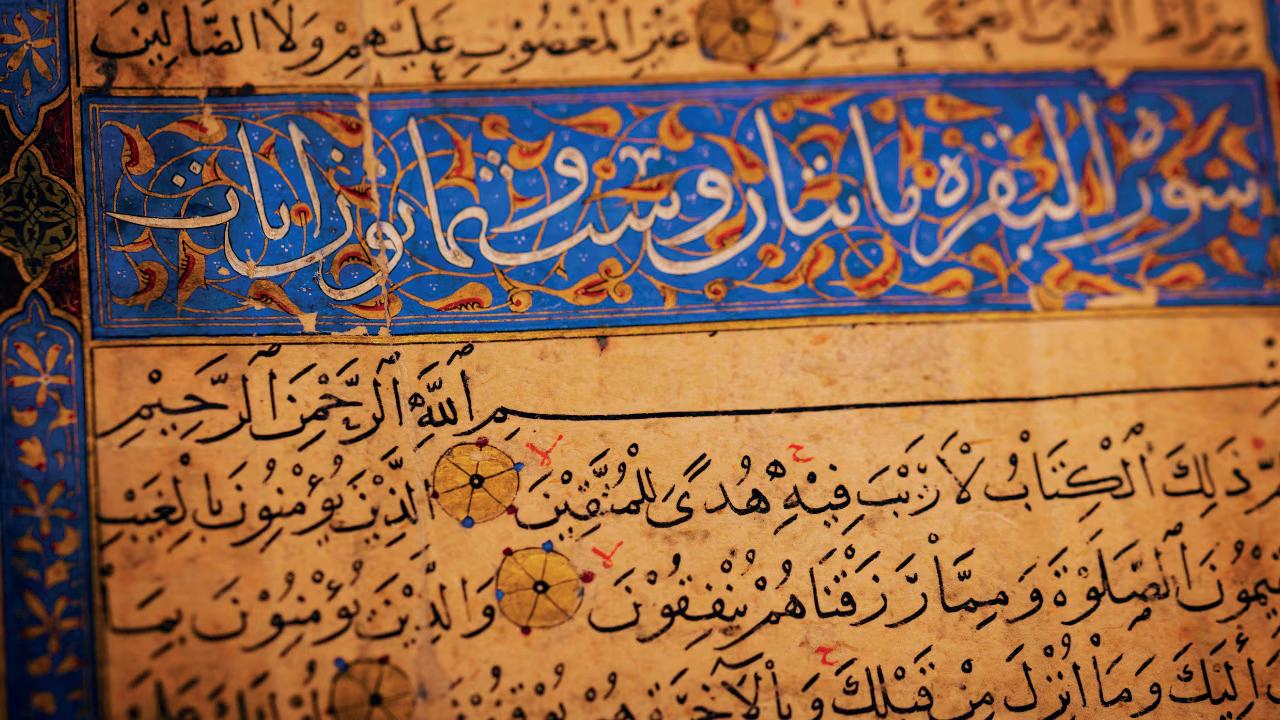 صِرَاطَ الَّذِينَ أَنْعَمْتَ عَلَيْهِمْ غَيْرِ الْمَغْضُوبِ عَلَيْهِمْ وَلَا الضَّالِّينَ
سورة البقرة مايتان وست وثمانون ايات
بِسْمِ ٱللَّهِ ٱلرَّحْمٰنِ ٱلرَّحِيمِ
ذٰلِكَ ٱلْكِتَابُ لَا رَيْبَ فِيْهِ ح هُدًى لِلْمُتَّقِيْنَ لا الَّذِيْنَ يُؤْمِنُوْنَ بِالْغَيْبِ
يمُونَ ٱلصَّلٰوةَ وَمِمَّا رَزَقْنَاهُمْ يُنْفِقُوْنَ لا وَالَّذِيْنَ يُؤْمِنُوْنَ بِمَا
اِلَيْكَ وَمَا اُنْزِلَ مِنْ قَبْلِكَ ح وَبِالْاٰخِرَةِ هُمْ يُوْقِنُوْنَ